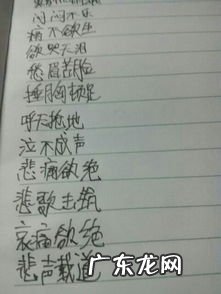 闷闷不乐
痛不欲生
欲哭无泪
愁眉苦脸
捶胸顿足
呼天抢地
泣不成声
悲痛欲绝
悲歌击筑
哀痛欲绝
悲声载道
广东龙网